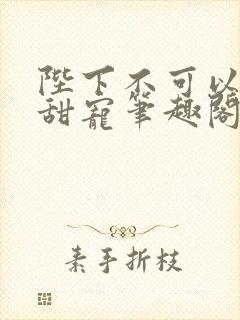 陛下不可以
甜寵筆趣閣
素手折枝